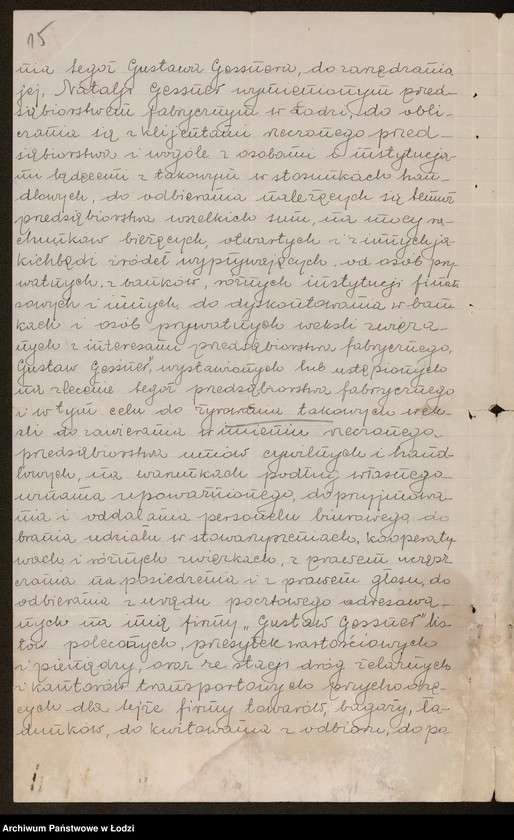 15
nia tegoż Gustawa Gessnera, do zarządzania
jej, Natalji Gessner wymienionym przed-
siębiorstwem fabrycznym w Łodzi, do obli-
czania się z klijentami rzeczonego przed-
siębiorstwa i wogóle z osobami i instytucja-
mi będącemi z takowym w stosunkach han-
dlowych, do odbierania należących się temuż
przedsiębiorstwu wszelkich sum, na mocy ra-
chunków bieżących, otwartych i z innych ja-
kichbądź źródeł wypływających, od osób pry
watnych, z banków, różnych instytucji finan
sowych i innych, do dyskontowania w ban
kach i osób prywatnych weksli związa-
nych z interesami przedsiębiorstwa fabrycznego,
Gustaw Gessner", wystawionych lub ustąpionych
na zlecenie tegoż przedsiębiorstwa fabrycznego
i w tym celu do żyrowania takowych wek-
sli do zawierania w imieniu rzeczonego
przedsiębiorstwa umów cywilnych i hand-
lowych, na warunkach podług własnego
uznania upoważnionego, do przyjmowa-
nia i oddalania personelu biurowego, do
brania udziału w stowarzyszeniach, kooperaty
wach i różnych związkach, z prawem uczęsz
czania na posiedzenia i z prawem głosu, do
odbierania z urzędu pocztowego adresowa-
nych na imię firmy „Gustaw Gessner" lis
tów poleconych, przesyłek wartościowych
i pieniędzy, oraz ze stacji dróg żelaznych
i kantorów transportowych przychodzą-
cych dla tejże firmy towarów, bagaży, ła-
dunków, do kwitowania z odbioru, do po
Archiwum Państwowe w Łodzi